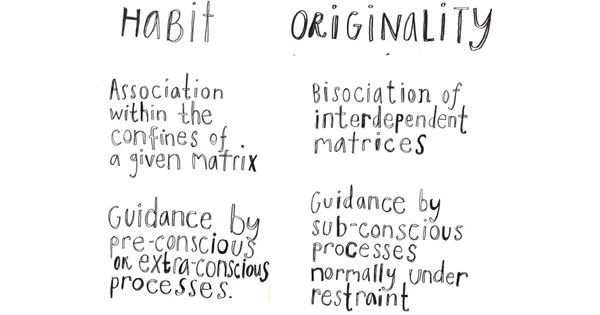 HABIT
Association
within the
confines of
a given matrix
Guidance by
pre-conscious
OR extra-conscious
processes.
ORIGINALITY
Bisociation of
interdependent
matrices
Guidance by
sub-conscious
processes
normally under
restraint